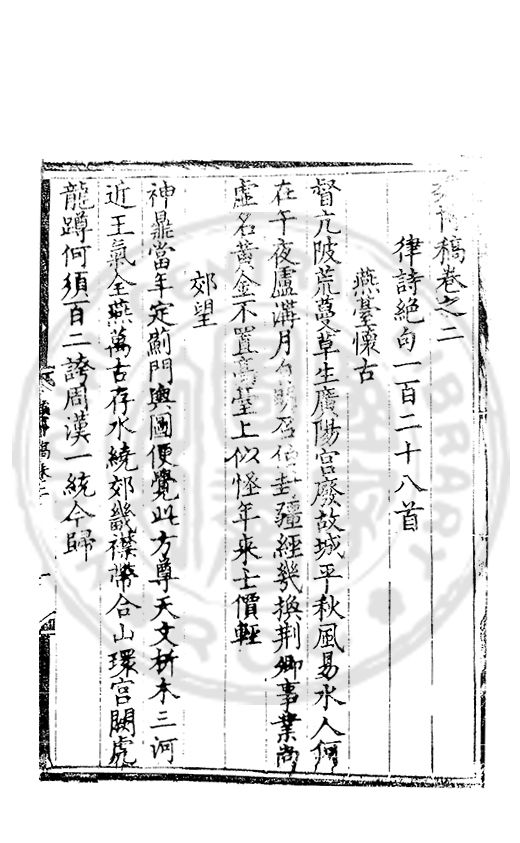 稿卷之二
律詩絕句一百二十八首
燕臺懷古
督亢陂荒蔓草生廣陽宮廢故城平秋風易水人何
在午夜盧溝月自明召伯封疆經幾換荆卿事業尚
虛名黃金不置高臺上似怪年來士價輕
郊望
神鼎當年定薊門輿圖便覺此方尊天文析木三河
近王氣全燕萬古存水繞郊畿襟帶合山環宮闕虎
龍蹲何須百二誇周漢一統今歸